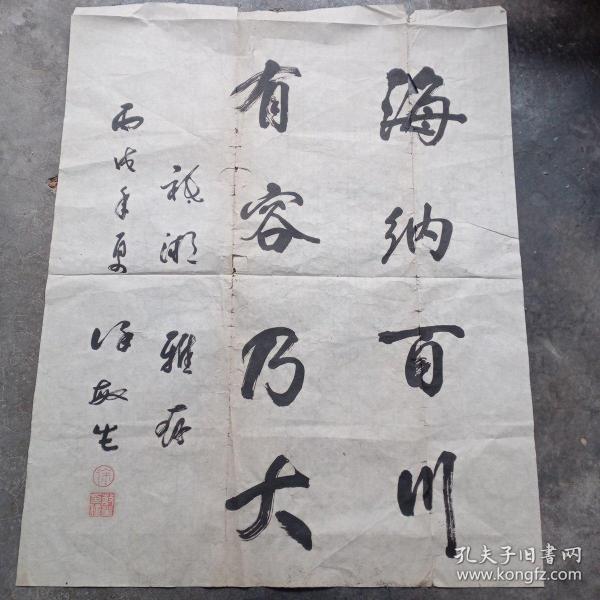 海纳百川
有容乃大
雅存
丙戌年夏 徐敏生
孔夫子旧书网
www.kongfz.com